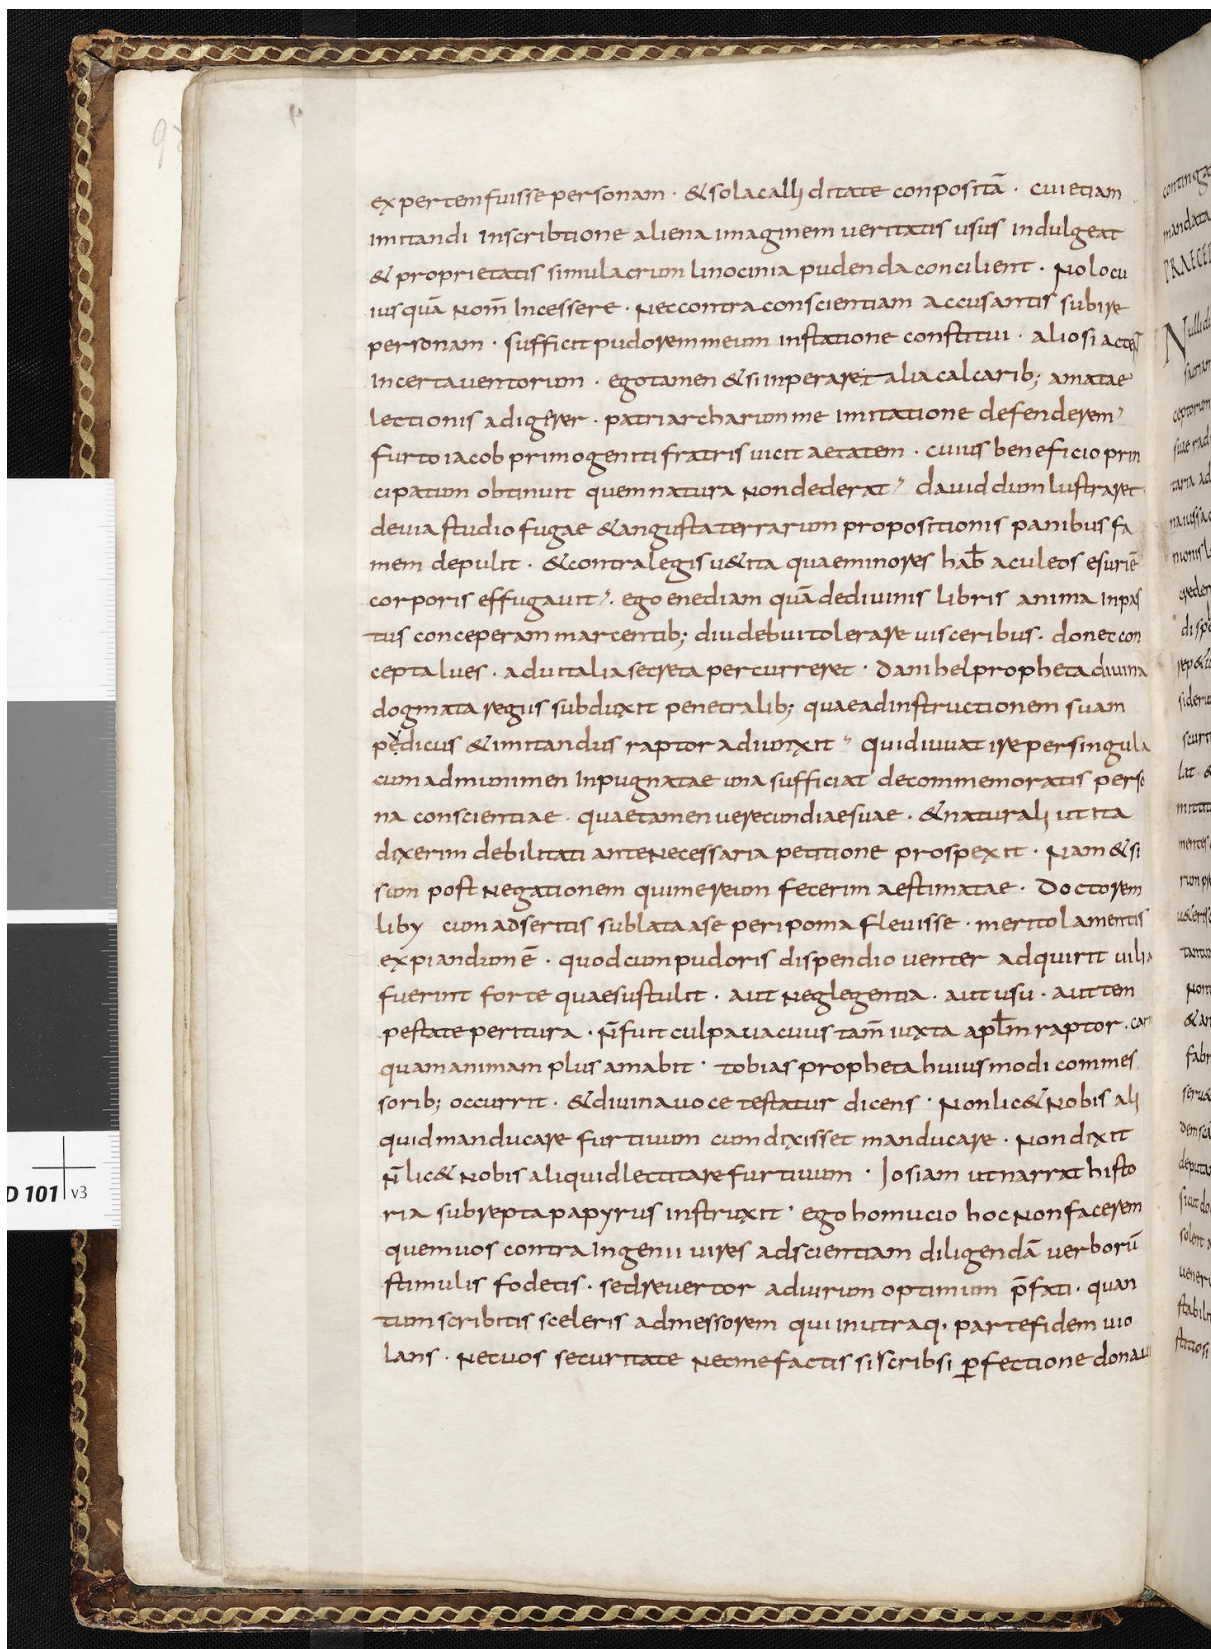 expertem fuisse personam · & sola callyditate conposita᷃ · cui etiam
imitandi Inscribtione aliena imaginem veritatis usus indulgeat
& proprietatis simulacrum linocinia pudenda concilient · Nolo cu
iusquā Nom̄ Incessere · Nec contra conscientiam accusantis subire
personam · sufficit pudorem meum inflatione constitui · alios iactet
Incerta ventorum · ego tamen & si inperaret alia calcarib; amatae
lectionis adigerer · patriarcharum me imitatione defenderem
furto iacob primogeniti fratris vicit aetatem · cuius beneficio prin
cipatum obtinuit quem natura Non dederat · david dum lustraret
devia studio fugae & angusta terrarum propositionis panibus fa
mem depulit · & contra legis u&ita quae minores hab̄ aculeos esuriē
corporis effugavit · ego enediam quā de divinis libris anima Inpas
tus conceperam marcentib; diu debui tolerare visceribus · donec con
cepta lues · ad vitalia secreta percurreret · Danihel propheta divina
dogmata regiis subduxit penetralib; quae ad instructionem suam
pedicus & imitandus raptor adiunxit · quid iuvat ire per singula
cum ad munimen Inpugnatae una sufficiat de commemoratis perso
na conscientiae · quae tamen verecundiae suae · & naturaly ut ita
dixerim debilitati ante Necessaria petitione prospexit · Nam & si
sum post Negationem qui mereum fecerim aestimatae · Doctorem
liby cum adseritis sublata a se peripoma flevisse · merito lamentis
expiandum ē · quod cum pudoris dispendio venter adquirit vilia
fuerint forte quae sustulit · aut Neglegentia · aut usu · aut tem
pestate peritura · N̄ fuit culpa vacuus tam̄ iuxta apłm raptor · car
quam animam plus amabit · tobias propheta huiusmodi commes
sorib; occurrit · & divina voce testatur dicens · Non lic& Nobis aly
quid manducare furtivum cum dixisset manducare · Non dixit
N̄ lic& Nobis aliquid lectitare furtivum · Josiam ut narrat histo
ria subrepta papyrus instruxit · ego homucio hoc Non facerem
quem vos contra Ingenii vires ad scientiam diligendā verborū
stimulis fodetis · sed revertor ad virum optimum p̄fati · quan
tum scribitis sceleris admessorem qui in utraq· parte fidem vio
lans · Nec vos securitate Nec me factis si scribsi ꝑfectione donavi